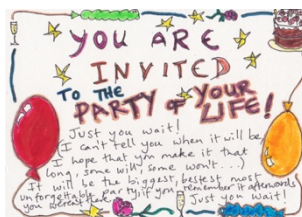 YOU ARE
INVITED
TO THE
PARTY OF YOUR
LIFE!
Just you wait!
I can't tell you when it will be,
I hope that you make it that
long, some will, some won't....)
It will be the biggest, bestest most
unforgettable party, if you remember it afterwords
you weren't
Just you wait!